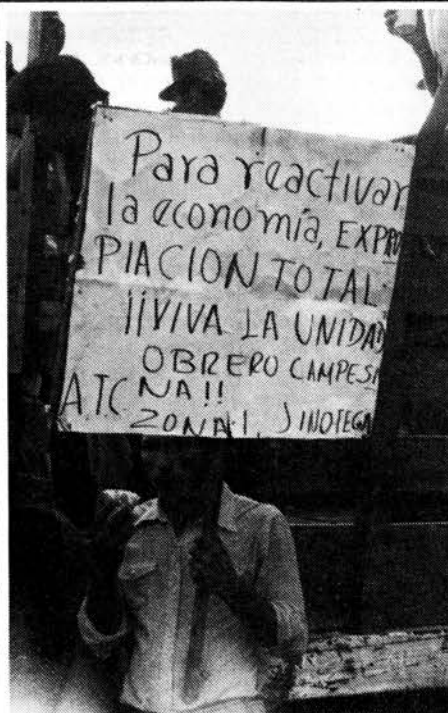 Para reactivar
la economía, EXPRO
PIACION TOTAL
¡¡VIVA LA UNIDAD
OBRERO CAMPESI
NA!!
A.T.C. ZONA I, JINOTEGA